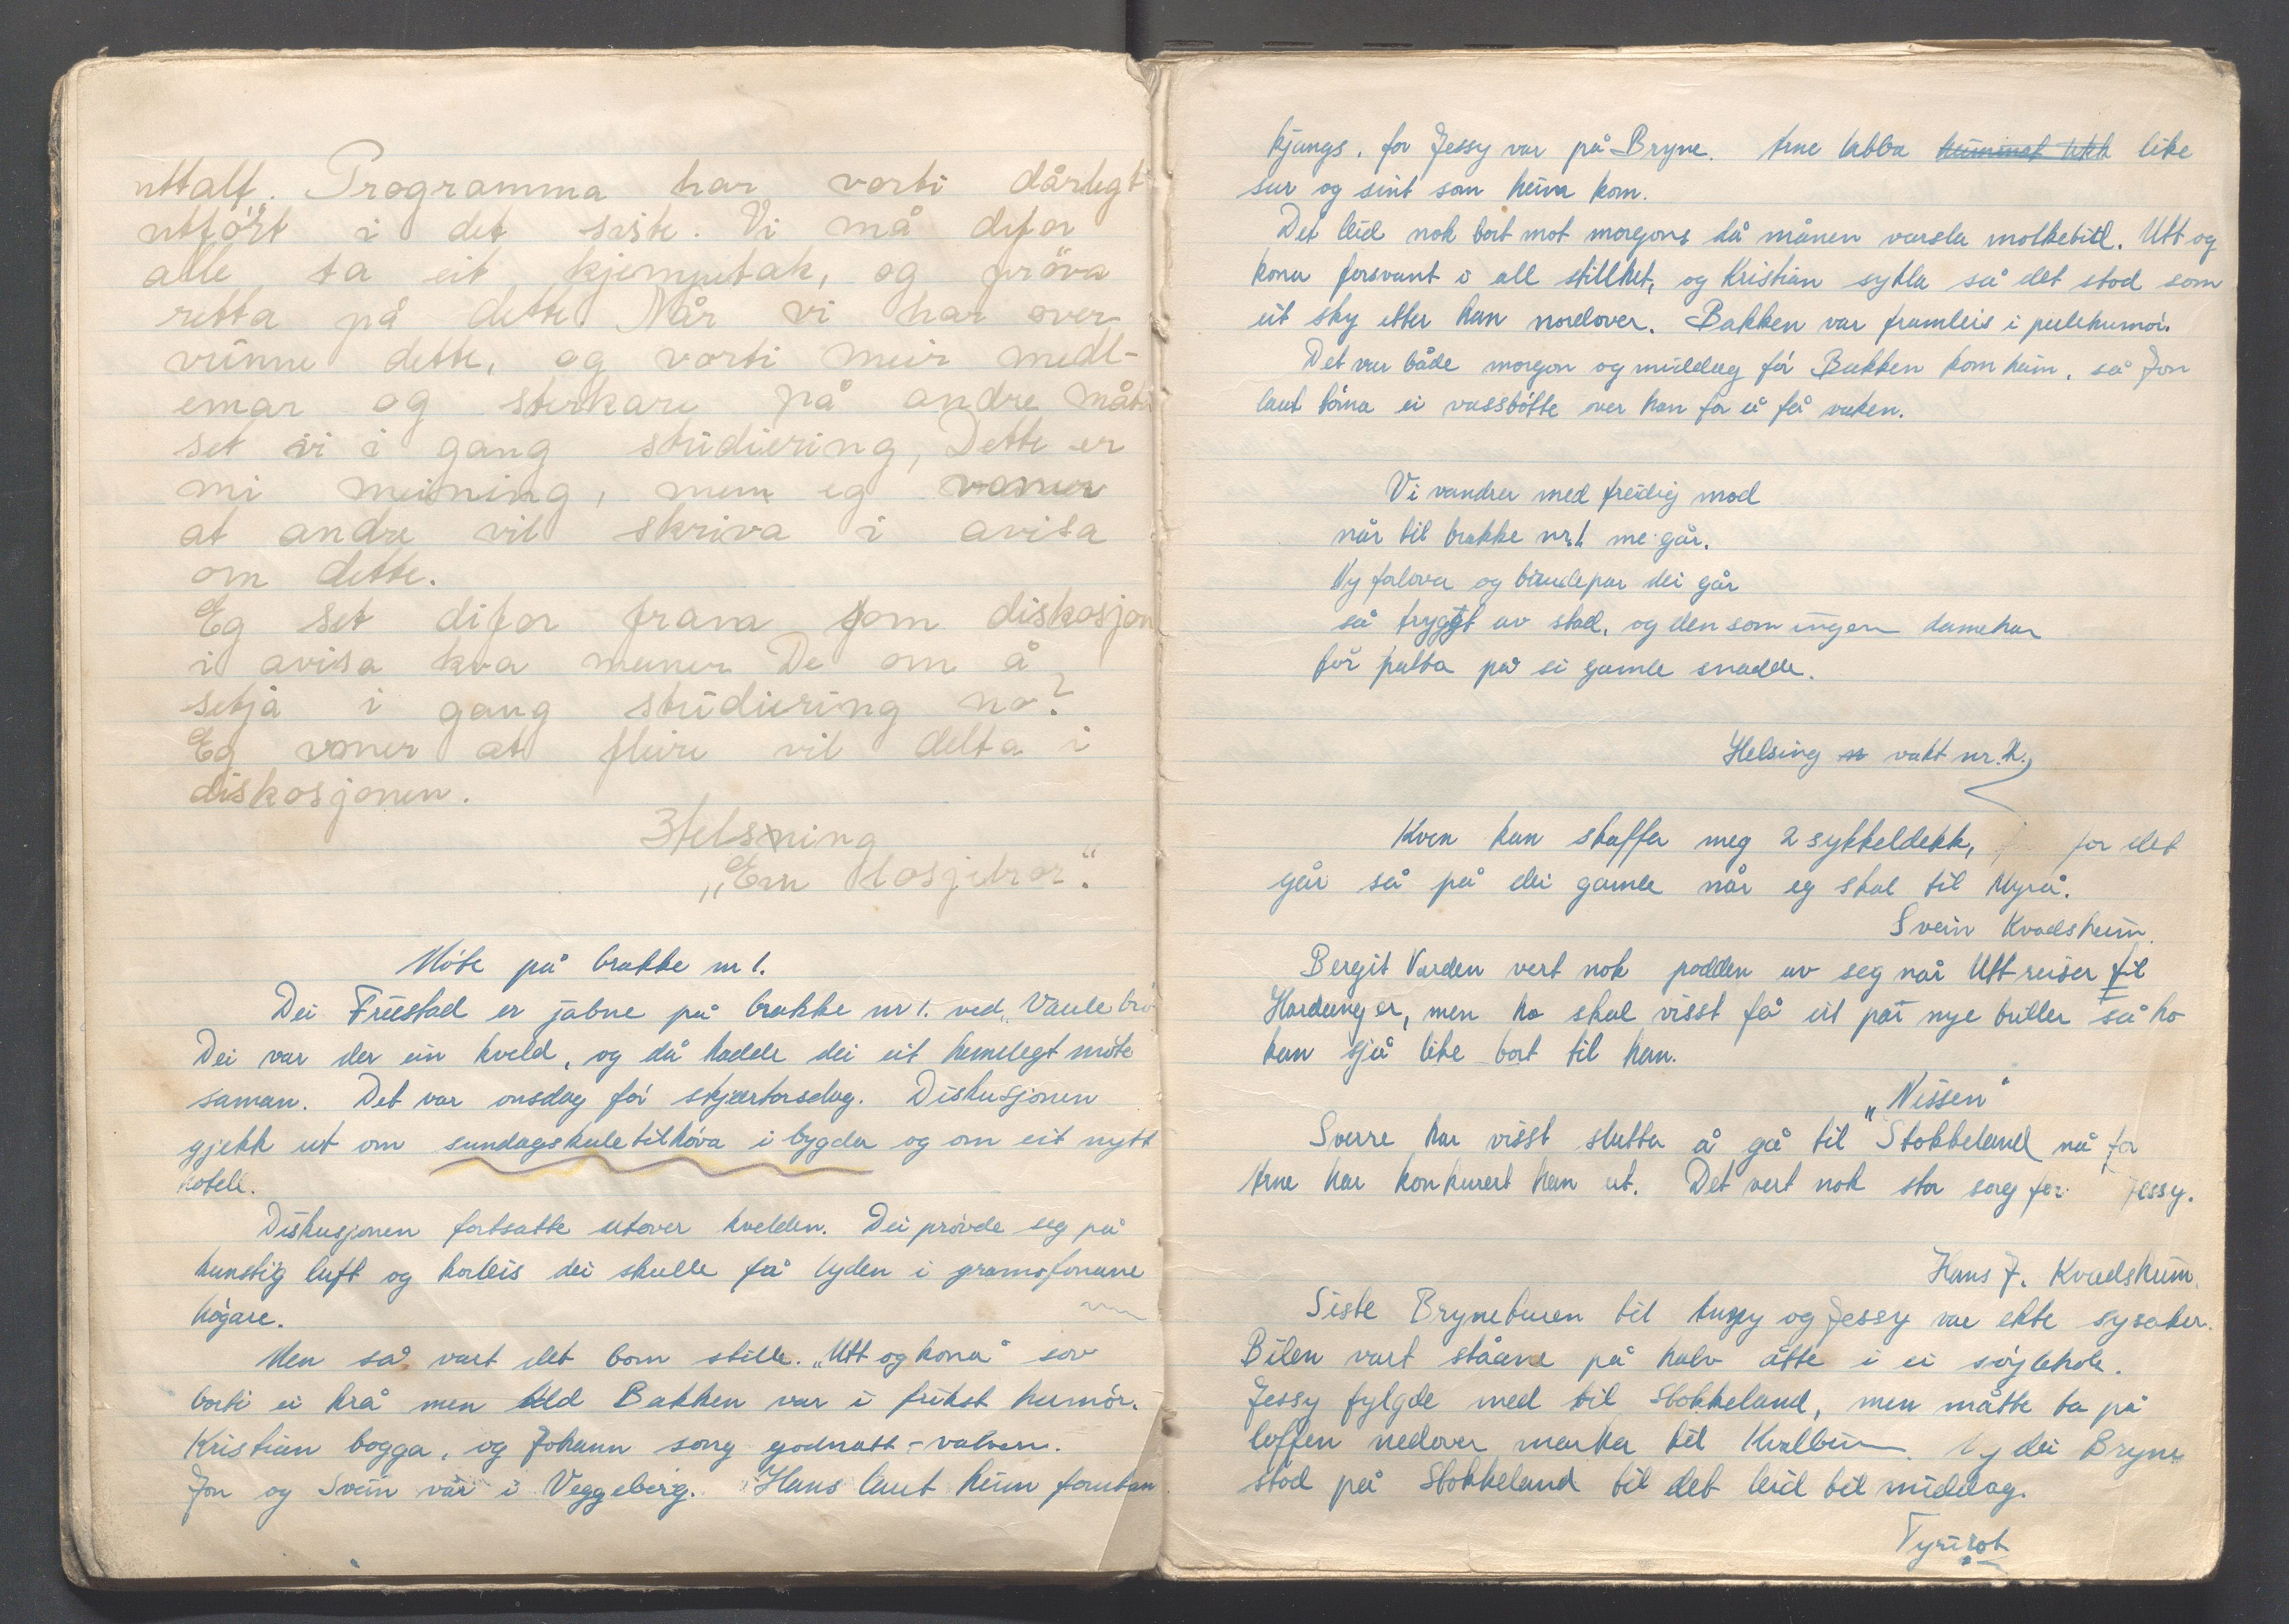 uttalt. Programma har vorti dårlegt
utført i det siste. Vi må difor
alle ta eit kjempetak, og pröva
retta på dette. Når vi har over-
vunne dette, og vorti meir medl-
emar og sterkare på andre måtar
set vi i gang studiering, Dette er
mi meining, men eg vonar
at andre vil skriva i avisa
om dette.
Eg set difor fram som diskosjon
i avisa kva meiner De om å
setja i gang studiering no?
Eg voner at fleire vil delta i
diskosjonen.
Helsning
„Ein losjebror".
Möte på brakke nr 1.
Dei Friestad er jabne på brakke nr 1. ved „Vaule bro
Dei var der ein kveld, og då hadde dei eit hemelegt möte
saman. Det var onsdag för skjærtorsdag. Diskusjonen
gjekk ut om sundagskuletilhöva i bygda og om eit nytt
hotell.
Diskusjonen fortsatte utover kvelden. Dei prövde seg på
kunstig luft og korleis dei skulle få lyden i gramofonane
högare.
Men så vart det bom stille. „Utt og kona" sov
borti ei krå men Old Bakken var i friskt humör.
Kristian bogga, og Johann song godnatt-valsen.
Jon og Svein var i Veggeberg. Hans laut heim forutan
kjangs, for Jessy var på Bryne. Arne labba like
sur og sint som heiva kom.
Det leid nok bort mot morgons då månen varsla molkebitl. Utt og
kona forsvant i all stillhet, og Kristian sykla så det stod som
eit sky etter han nordover. Bakken var framleis i pulehumör.
Det var både morgon og middag för Bakken kom heim, så Jon
laut töma ei vassbötte over han for å få vaken.
Vi vandrer med freidig mod
når til brakke nr. 1 me går.
Ny forlova og brudepar dei går
så trygt av stad, og den som ingen dame har
får patta på si gamle snadde.
Helsing vakt nr. 2.
Kven kan skaffa meg 2 sykkeldekk, for det
går så på dei gamle når eg skal til Myrå.
Svein Kvadsheim.
Bergit Varden vert nok podden av seg når Utt reiser til
Hardanger, men ho skal visst få eit par nye briller så ho
kan sjå like bort til han.
„Nissen"
Sverre har visst slutta å gå til Stokkeland nå for
Arne har konkurert han ut. Det vert nok stor sorg for Jessy.
Hans J. Kvadsheim.
Siste Bryneturen til og Jessy var ekte sysaker.
Bilen vart ståane på halv åtte i ei söylehole.
Jessy fylgde med til Stokkeland, men måtte ta på
loffen nedover marka til dei Bryne
stod på Stokkeland til det leid til middag.
Tyrirot